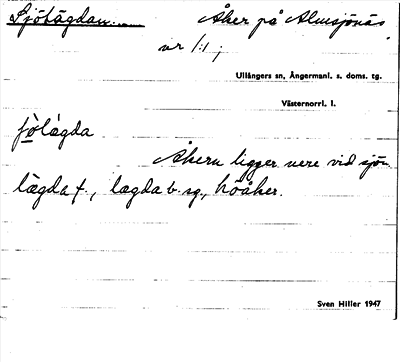 Sjölägdan Åker på Alnsjönäs
nr 1:1;
Ullångers sn, Ångermanl. s. doms. tg.
Västernorrl. l.
fo̱lágda
Åkern ligger nere vid sjön
lägda f., lagda b. sg., höåker.
Sven Hiller 1947